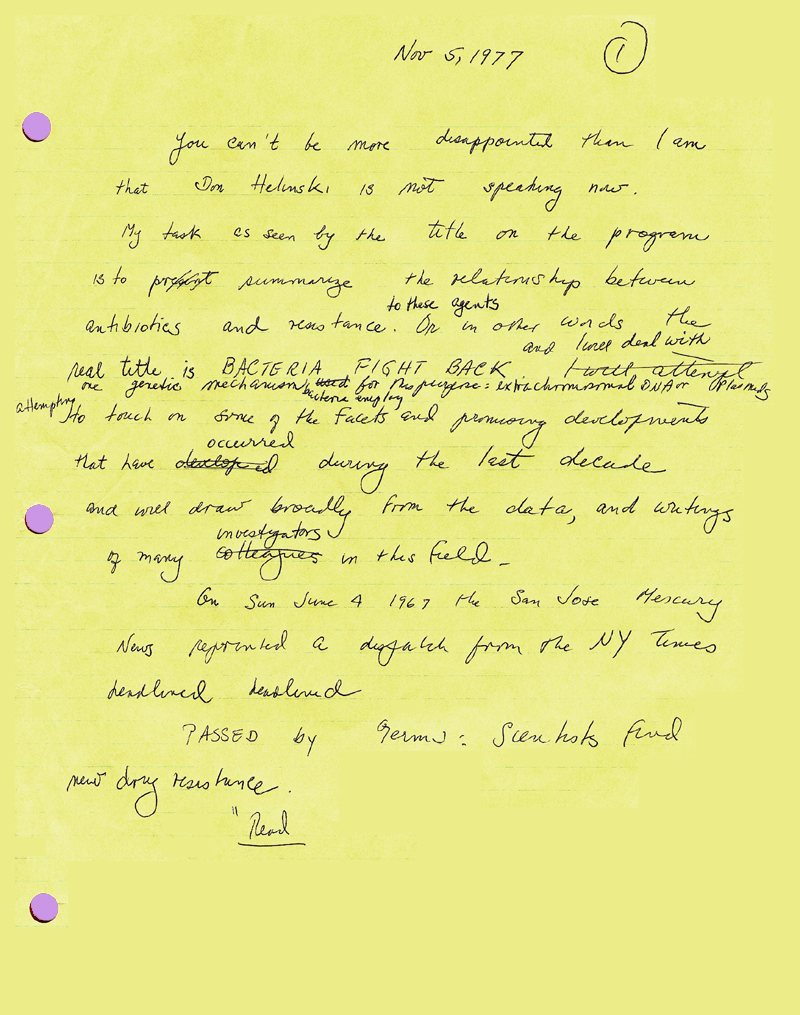 Nov 5, 1977 1
You can't be more disappointed than I am
that Don Helinski is not speaking now.
My task as seen by the title on the program
is to present summarize the relationship between
to these agents
antibiotics and resistance. Or in other words the
and I will deal with
real title is BACTERIA FIGHT BACK I will attempt
one genetic mechanism used for this purpose: extrachromosomal DNA or plasmids
bacteria employ
attempting to touch on some of the facets and promising developments
occurred
that have developed during the last decade
and will draw broadly from the data, and writings
investigators
of many colleagues in this field.
On Sun June 4 1967 the San Jose Mercury
News reprinted a dispatch from the NY Times
headlined headlined
PASSED by Germs: Scientists find
new drug resistance.
"Read